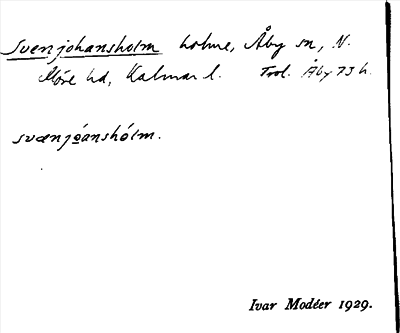 Svenjohansholm holme, Åby sn, N.
Möre hd, Kalmar l. Trol. Åby 73 h.
svænjo̲ánshólm.
Ivar Modéer 1929.